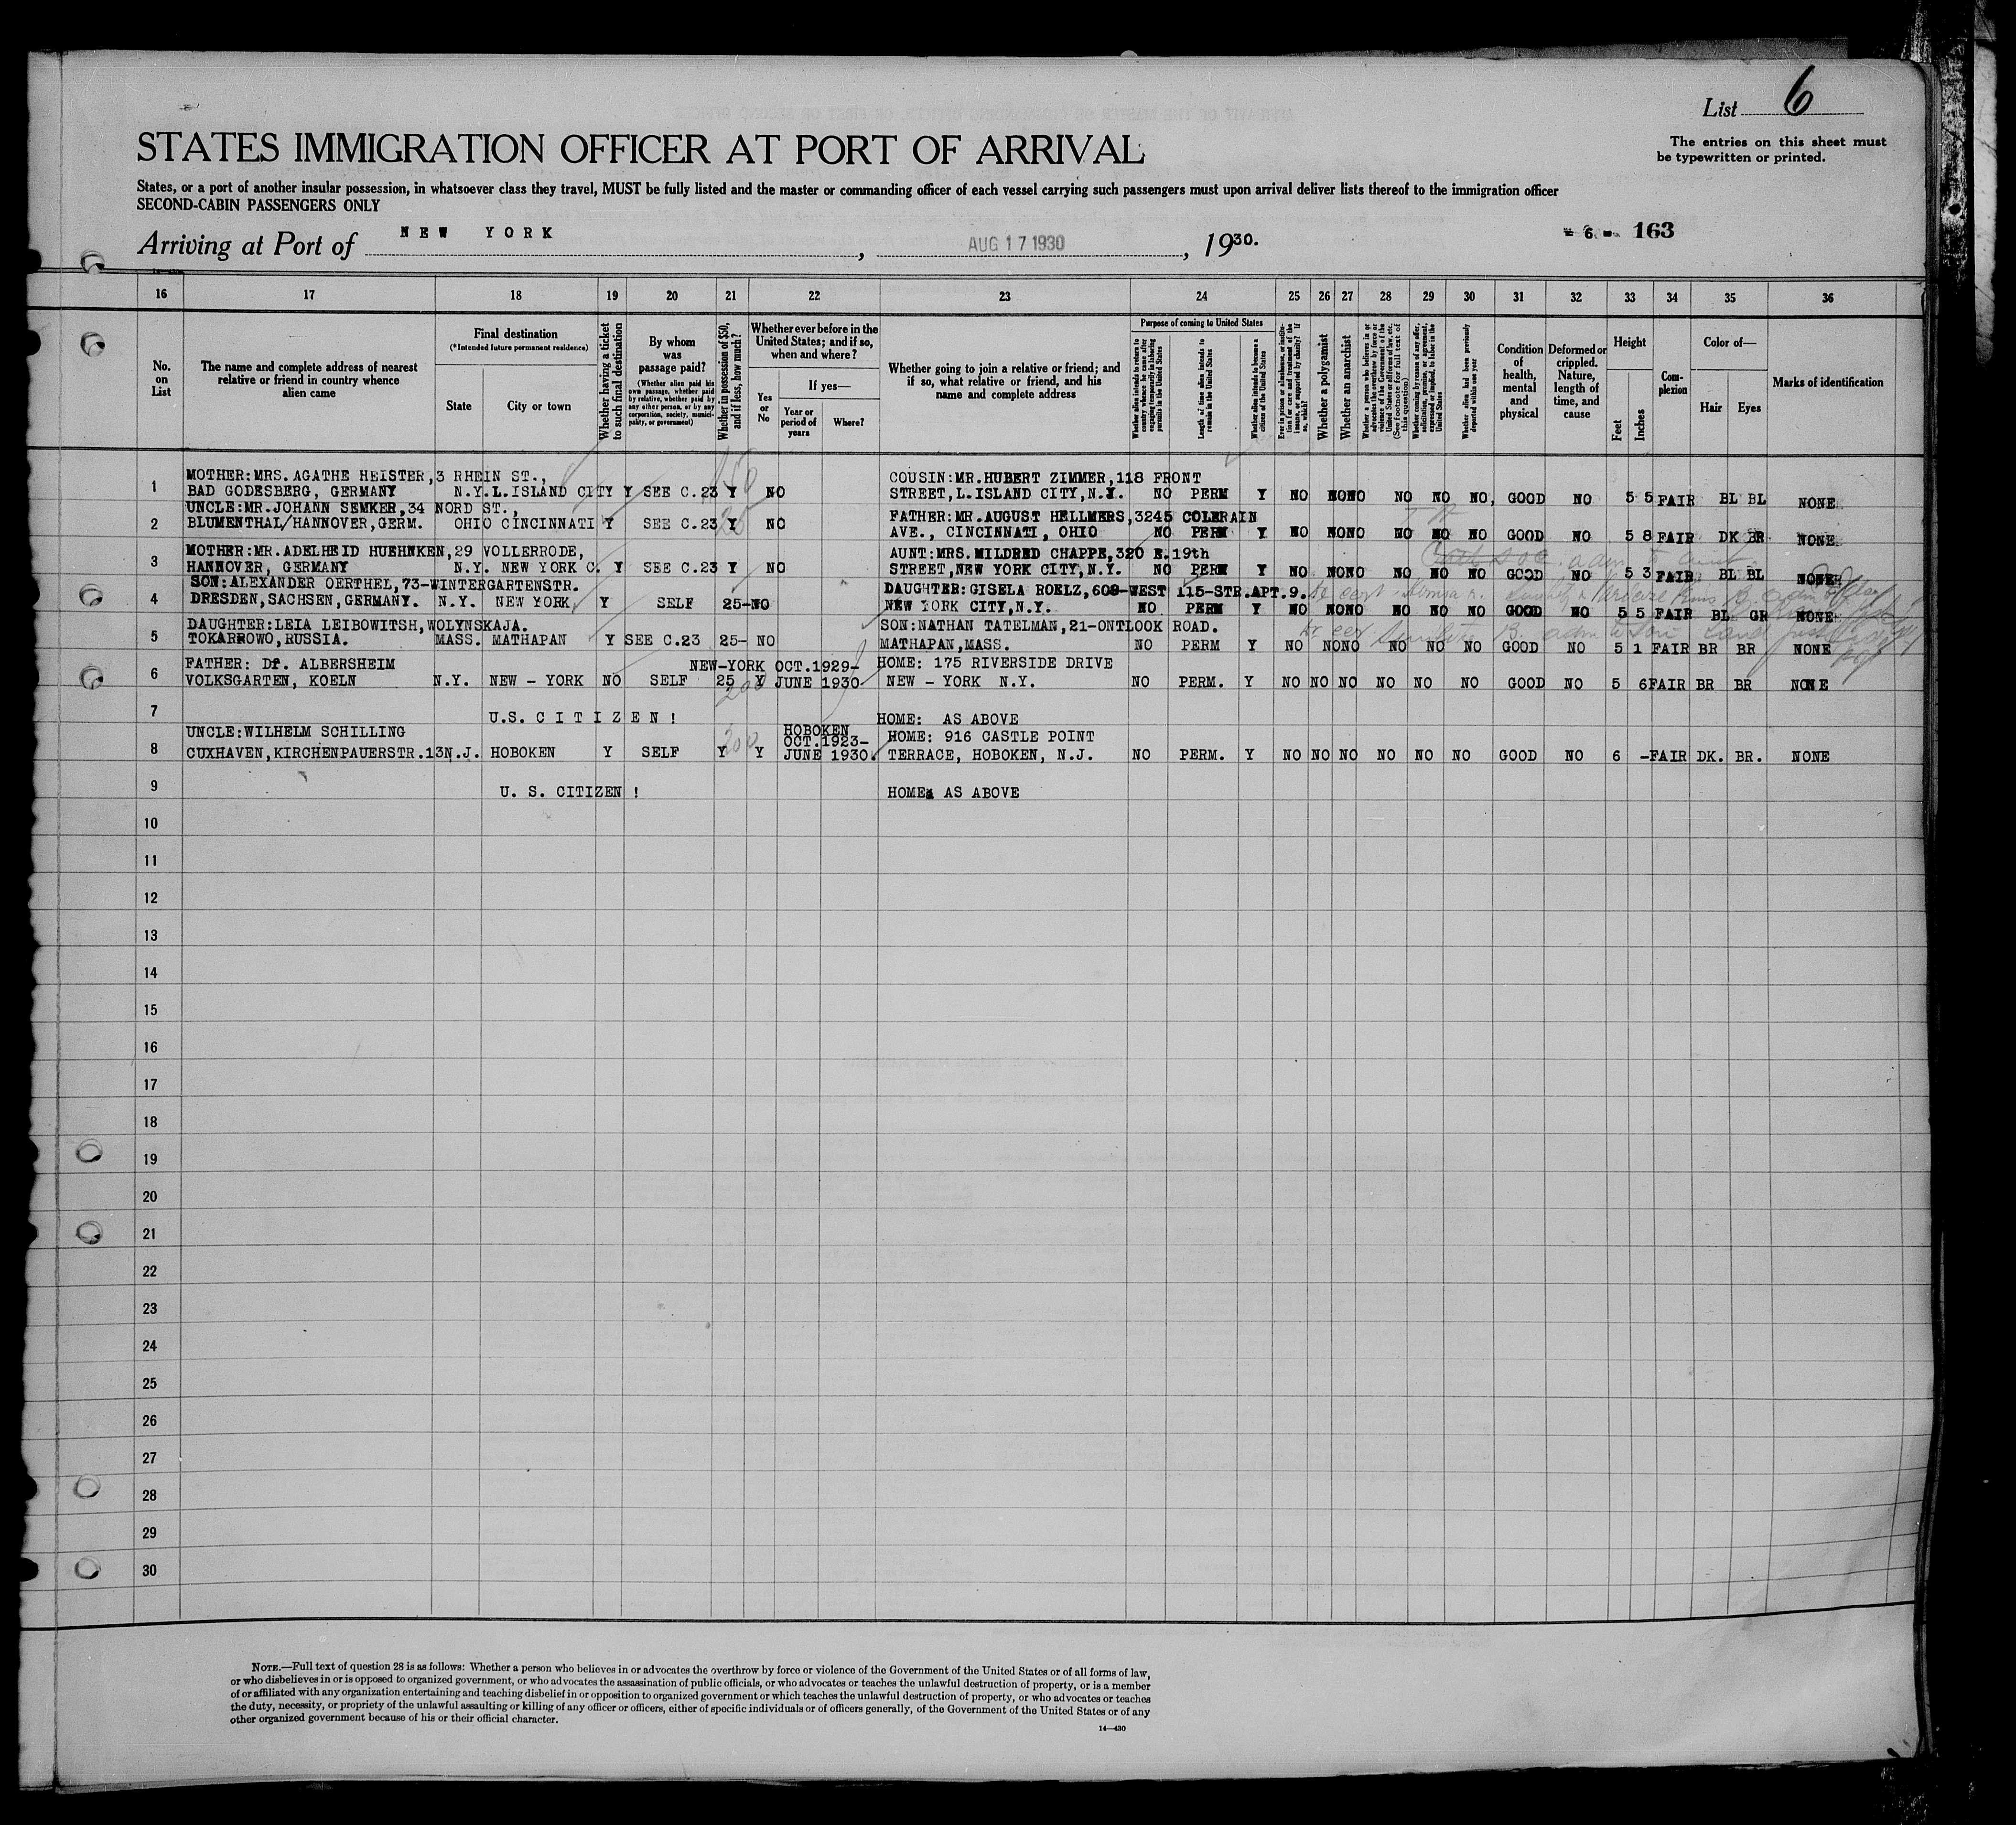 List 6
The entries on this sheet must
be typewritten or printed.
STATES IMMIGRATION OFFICER AT PORT OF ARRIVAL
States, or a port of another insular possession, in whatsoever class they travel, MUST be fully listed and the master or commanding officer of each vessel carrying such passengers must upon arrival deliver lists thereof to the immigration officer
SECOND-CABIN PASSENGERS ONLY
Arriving at Port of NEW YORK, AUG 17 1930, 1930.
- 6 - 163
16 17 18 19 20 21 22 23 24 25 26 27 28 29 30 31 32 33 34 35 36
No. on List
The name and complete address of nearest relative or friend in country whence alien came
Final destination
(*Intended future permanent residence)
State
City or town
Whether having a ticket to such final destination
By whom was passage paid?
(Whether alien paid his own passage, whether paid by relative, whether paid by any other person, or by any corporation, society, municipality, or government)
Whether in possession of $50, and if less, how much?
Whether ever before in the United States; and if so, when and where?
Yes or No
If yes—
Year or period of years
Where?
Whether going to join a relative or friend; and if so, what relative or friend, and his name and complete address
Purpose of coming to United States
Whether alien intends to return to country whence he came after engaging temporarily in laboring pursuits in the United States
Length of time alien intends to remain in the United States
Whether alien intends to become a citizen of the United States
Ever in prison or almshouse, or institution for care and treatment of the insane, or supported by charity? If so, which?
Whether a polygamist
Whether an anarchist
Whether a person who believes in or advocates the overthrow by force or violence of the Government of the United States or all forms of law, etc. (See footnote for full text of this question)
Whether coming by reason of any offer, solicitation, promise, or agreement, expressed or implied, to labor in the United States
Whether alien had been previously deported within one year
Condition of health, mental and physical
Deformed or crippled. Nature, length of time, and cause
Height
Feet
Inches
Complexion
Color of—
Hair
Eyes
Marks of identification
MOTHER:MRS.AGATHE HEISTER,3 RHEIN ST., COUSIN:MR.HUBERT ZIMMER,118 FRONT
1 BAD GODESBERG, GERMANY N.Y.L.ISLAND CITY Y SEE C.23 Y NO STREET,L.ISLAND CITY,N.Y. NO PERM Y NO NONO NO NO NO, GOOD NO 5 5 FAIR BL BL NONE
UNCLE:MR.JOHANN SEMKER,34 NORD ST., FATHER:MR.AUGUST HELLMERS,3245 COLERAIN
2 BLUMENTHAL/HANNOVER,GERM. OHIO CINCINNATI Y SEE C.23 Y NO AVE., CINCINNATI, OHIO NO PERM Y NO NONO NO NO NO GOOD NO 5 8 FAIR DK BR NONE
MOTHER:MR.ADELHEID HUEHNKEN,29 VOLLERRODE, AUNT:MRS.MILDRED CHAPPE,320 E.19th
3 HANNOVER, GERMANY N.Y. NEW YORK C. Y SEE C.23 Y NO STREET,NEW YORK CITY,N.Y. NO PERM Y NO NONO NO NO NO GOOD NO 5 3 FAIR BL BL NONE
SON:ALEXANDER OERTHEL,73-WINTERGARTENSTR. DAUGHTER:GISELA ROELZ,609-WEST 115-STR.APT.9.
4 DRESDEN,SACHSEN,GERMANY. N.Y. NEW YORK, Y SELF 25-NO NEW YORK CITY,N.Y. NO PERM Y NO NONO NO NO NO GOOD NO 5 5 FAIR BL GR NONE
DAUGHTER:LEIA LEIBOWITSH,WOLYNSKAJA. SON:NATHAN TATELMAN,21-ONTLOOK ROAD.
5 TOKARROWO,RUSSIA. MASS. MATHAPAN Y SEE C.23 25- NO MATHAPAN,MASS. NO PERM Y NO NONO NO NO NO GOOD NO 5 1 FAIR BR BR NONE
FATHER: Dr. ALBERSHEIM NEW-YORK OCT.1929- HOME: 175 RIVERSIDE DRIVE
6 VOLKSGARTEN, KOELN N.Y. NEW - YORK NO SELF 25 Y JUNE 1930 NEW - YORK N.Y. NO PERM. Y NO NO NO NO NO NO GOOD NO 5 6 FAIR BR BR NONE
7 U.S. CITIZEN! HOME: AS ABOVE
UNCLE:WILHELM SCHILLING HOBOKEN OCT.1923- HOME: 916 CASTLE POINT
8 CUXHAVEN,KIRCHENPAUERSTR.13 N.J. HOBOKEN Y SELF Y 200 Y JUNE 1930. TERRACE, HOBOKEN, N.J. NO PERM. Y NO NO NO NO NO NO GOOD NO 6 - FAIR DK. BR. NONE
9 U. S. CITIZEN! HOME: AS ABOVE
10
11
12
13
14
15
16
17
18
19
20
21
22
23
24
25
26
27
28
29
30
NOTE.—Full text of question 28 is as follows: Whether a person who believes in or advocates the overthrow by force or violence of the Government of the United States or of all forms of law,
or who disbelieves in or is opposed to organized government, or who advocates the assassination of public officials, or who advocates or teaches the unlawful destruction of property, or is a member
of or affiliated with any organization entertaining and teaching disbelief in or opposition to organized government or which teaches the unlawful destruction of property, or who advocates or teaches
the duty, necessity, or propriety of the unlawful assaulting or killing of any officer or officers, either of specific individuals or of officers generally, of the Government of the United States or of any
other organized government because of his or their official character.
14—430